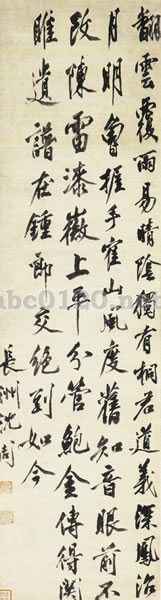 翻雲覆雨易晴陰獨有桐君道義深鳳沼
月明曾握手雀山風度舊知音眼前不
改陳雷漆徽上平分管鮑金傳得關
雎遺譜在鍾郎交絕到如今
長洲沈周
abc0120.net